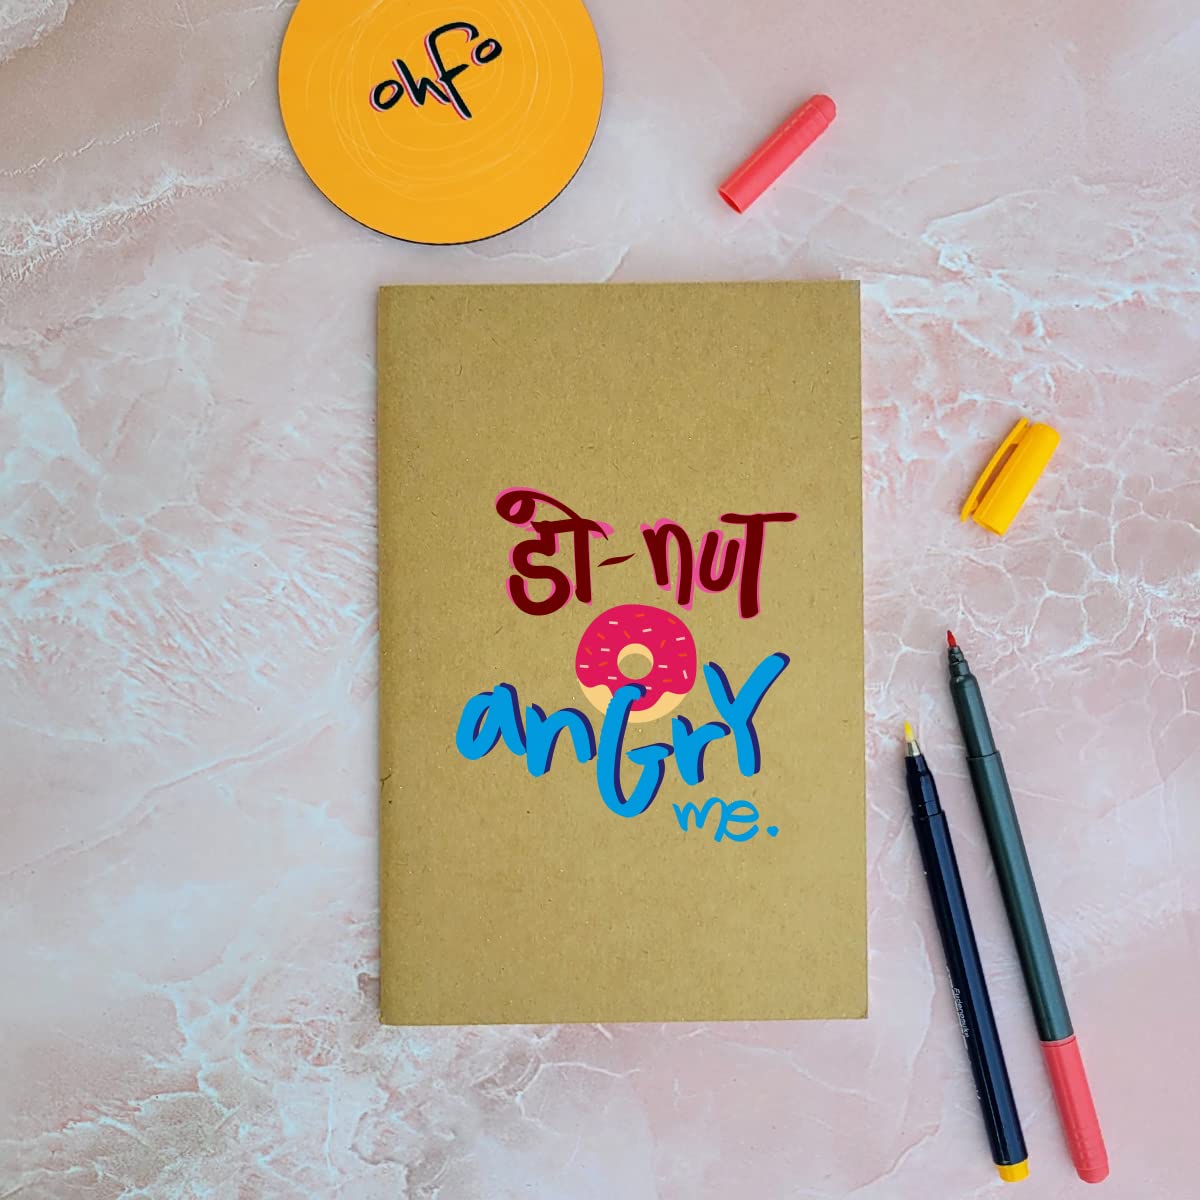 ohfo
डो-nuT
anGrY
me.